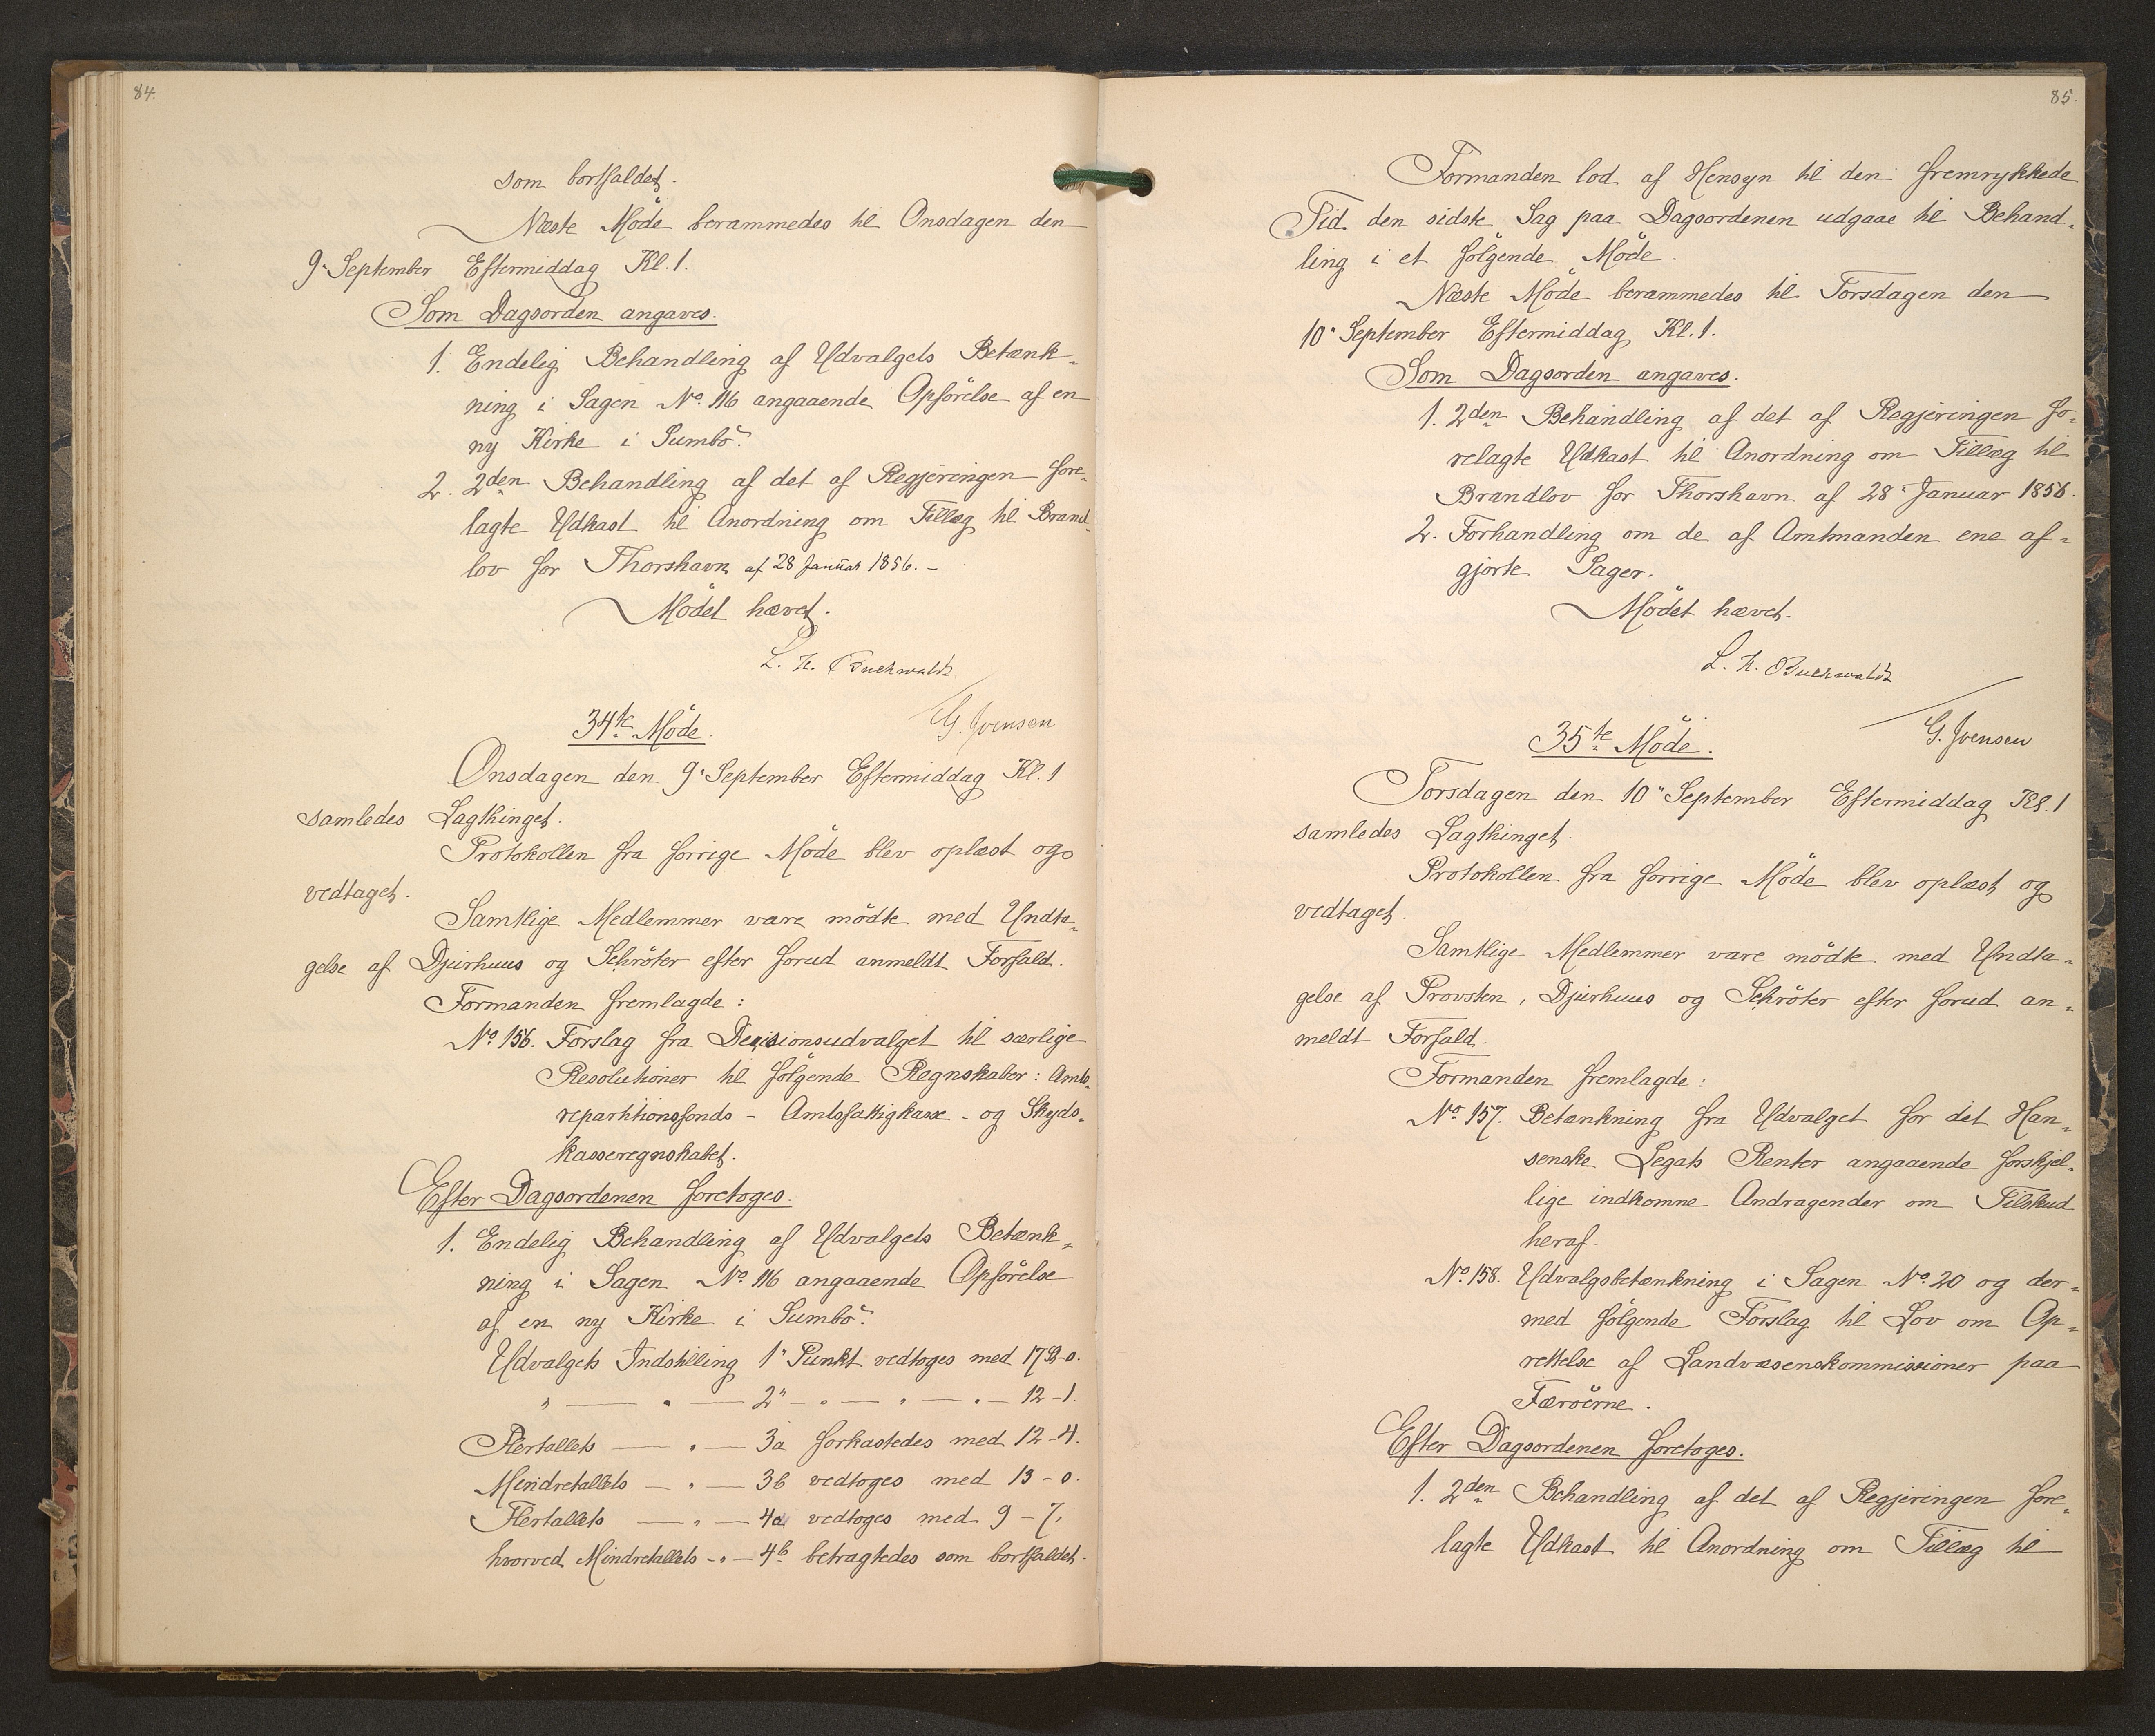 84.
som bortfaldet.
Næste Möde berammedes til Onsdagen den
9. September Eftermiddag Kl. 1.
Som Dagsorden angaves.
1. Endelig Behandling af Udvalgets Betænk-
ning i Sagen No. 116 angaaende Opförelse af en
ny Kirke i Sumbö.
2. 2den Behandling af det af Regjeringen fore-
lagte Udkast til Anordning om Tillæg til Brand-
lov for Thorshavn af 28 Januar 1856. -
Mödet hævet.
L. H. Buchwaldt
G. Jvensen
34te Möde.
Onsdagen den 9. September Eftermiddag Kl. 1
samledes Lagthinget.
Protokollen fra forrige Möde blev oplæst og
vedtaget.
Samtlige Medlemmer vare mödte med Undta-
gelse af Djurhuus og Schröter efter forud anmeldt Forfald.
Formanden fremlagde:
No. 156. Forslag fra Decisionsudvalget til særlige
Resolutioner til fölgende Regnskaber: Amts-
repartitionsfonds - Amtsfattigkasse - og Skyds-
kasseregnskabet.
Efter Dagsordenen foretoges.
1. Endelig Behandling af Udvalgets Betænk-
ning i Sagen No. 116 angaaende Opförelse
af en ny Kirke i Sumbö.
Udvalgets Indstilling 1" Punkt vedtoges med 17 - 0.
" — " — 2" — " — " — " — 12 - 1.
Flertallets — " — 3a forkastedes med 12 - 4.
Mindretallets — " — 3b vedtoges med 13 - 0.
Flertallets — " — 4a vedtoges med 9 - 7,
hvorved Mindretallets - " — 4b betragtedes som bortfaldet.
85.
Formanden lod af Hensyn til den fremrykkede
Tid den sidste Sag paa Dagsordenen udgaae til Behand-
ling i et fölgende Möde.
Næste Möde berammedes til Torsdagen den
10. September Eftermiddag Kl. 1.
Som Dagsorden angaves.
1. 2den Behandling af det af Regjeringen fo-
relagte Udkast til Anordning om Tillæg til
Brandlov for Thorshavn af 28. Januar 1856.
2. Forhandling om de af Amtmanden ene af-
gjorte Sager.
Mödet hævet.
L. H. Buchwaldt
G. Jvensen
35te Möde.
Torsdagen den 10" September Eftermiddag Kl. 1
samledes Lagthinget.
Protokollen fra forrige Möde blev oplæst og
vedtaget.
Samtlige Medlemmer vare mödte med Undta-
gelse af Provsten, Djurhuus og Schröter efter forud an-
meldt Forfald.
Formanden fremlagde:
No. 157. Betænkning fra Udvalget for det Han-
senske Legats Renter angaaende forskjel-
lige indkomne Andragender om Tilskud
heraf.
No. 158. Udvalgsbetænkning i Sagen No. 20 og der-
med fölgende Forslag til Lov om Op-
rettelse af Landvæsenskommissioner paa
Færöerne.
Efter Dagsordenen foretoges.
1. 2den Behandling af det af Regjeringen fore-
lagte Udkast til Anordning om Tillæg til